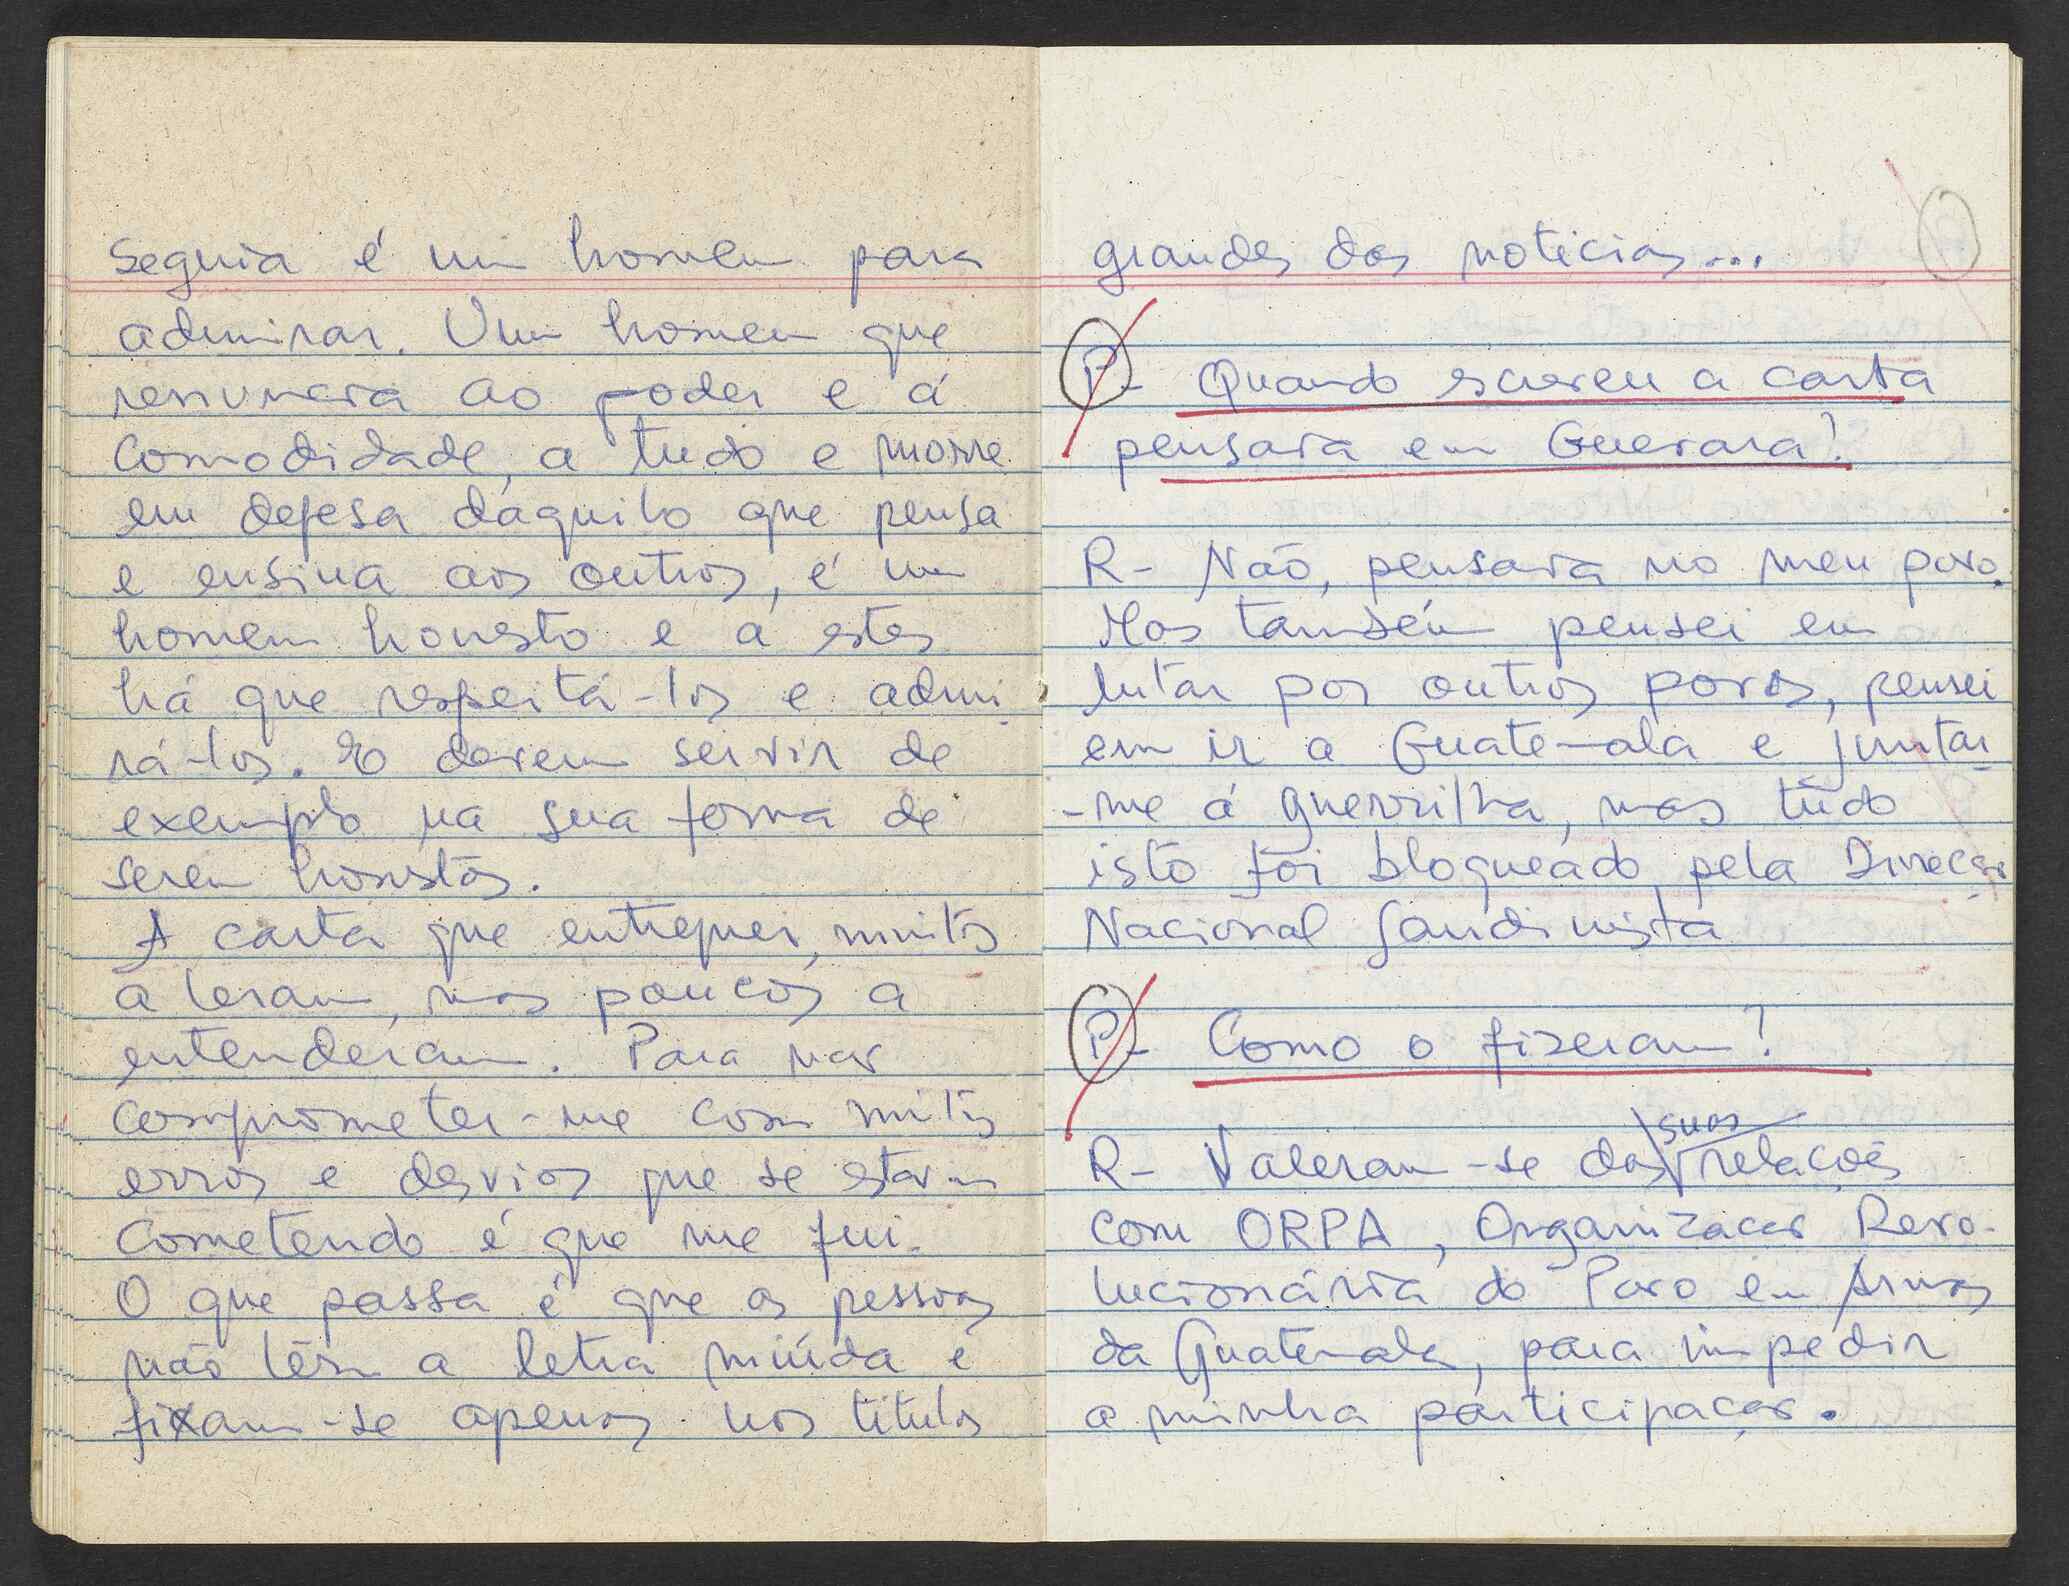 Seguia é um homem para
admirar. Um homem que
renuncia ao poder e á
comodidade, a tudo e morre
em defesa dáquilo que pensa
e ensina aos outros, é um
homem honesto e a estes
há que respeitá-los e admi-
rá-los. E devem servir de
exemplo na sua forma de
serem honestos.
A carta que entreguei, muitos
a leram, mas poucos a
entenderam. Para nao
comprometer-me com muitos
erros e desvios que se estavam
cometendo é que me fui.
O que passa é que as pessoas
não lêm a letra miúda e
fixam-se apenas nos titulos
grandes das noticias...
P- Quando escreveu a carta
pensava em Guevara?
R- Não, pensava no meu povo.
Mas também pensei em
lutar por outros povos, pensei
em ir a Guatemala e juntar-
-me á guerrilha, mas tudo
isto foi bloqueado pela Direcçao
Nacional Sandinista
P- Como o fizeram?
suas
R- Valeram-se das relacões
com ORPA, Organizacao Revo-
lucionária do Povo em Armas
da Guatemala, para impedir
a minha participaçao.